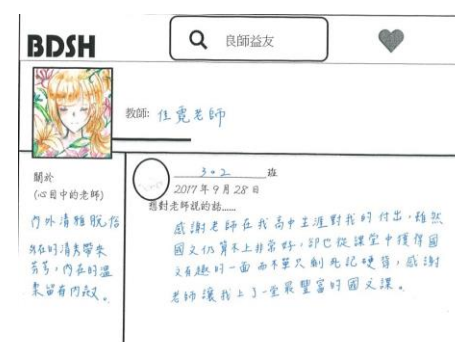 BDSH
良師益友
教師: 佳霓老師
關於
(心目中的老師)
內外清雅脫俗
外在的清秀帶來
芬芳，內在的溫
柔留有內斂。
302 班
2017 年 9 月 28 日
想對老師說的話......
感謝老師在我高中生涯對我的付出，雖然
國文仍算不上非常好，卻也從課堂中獲得國
文有趣的一面而不單只剩死記硬背，感謝
老師讓我上了一堂最豐富的國文課。